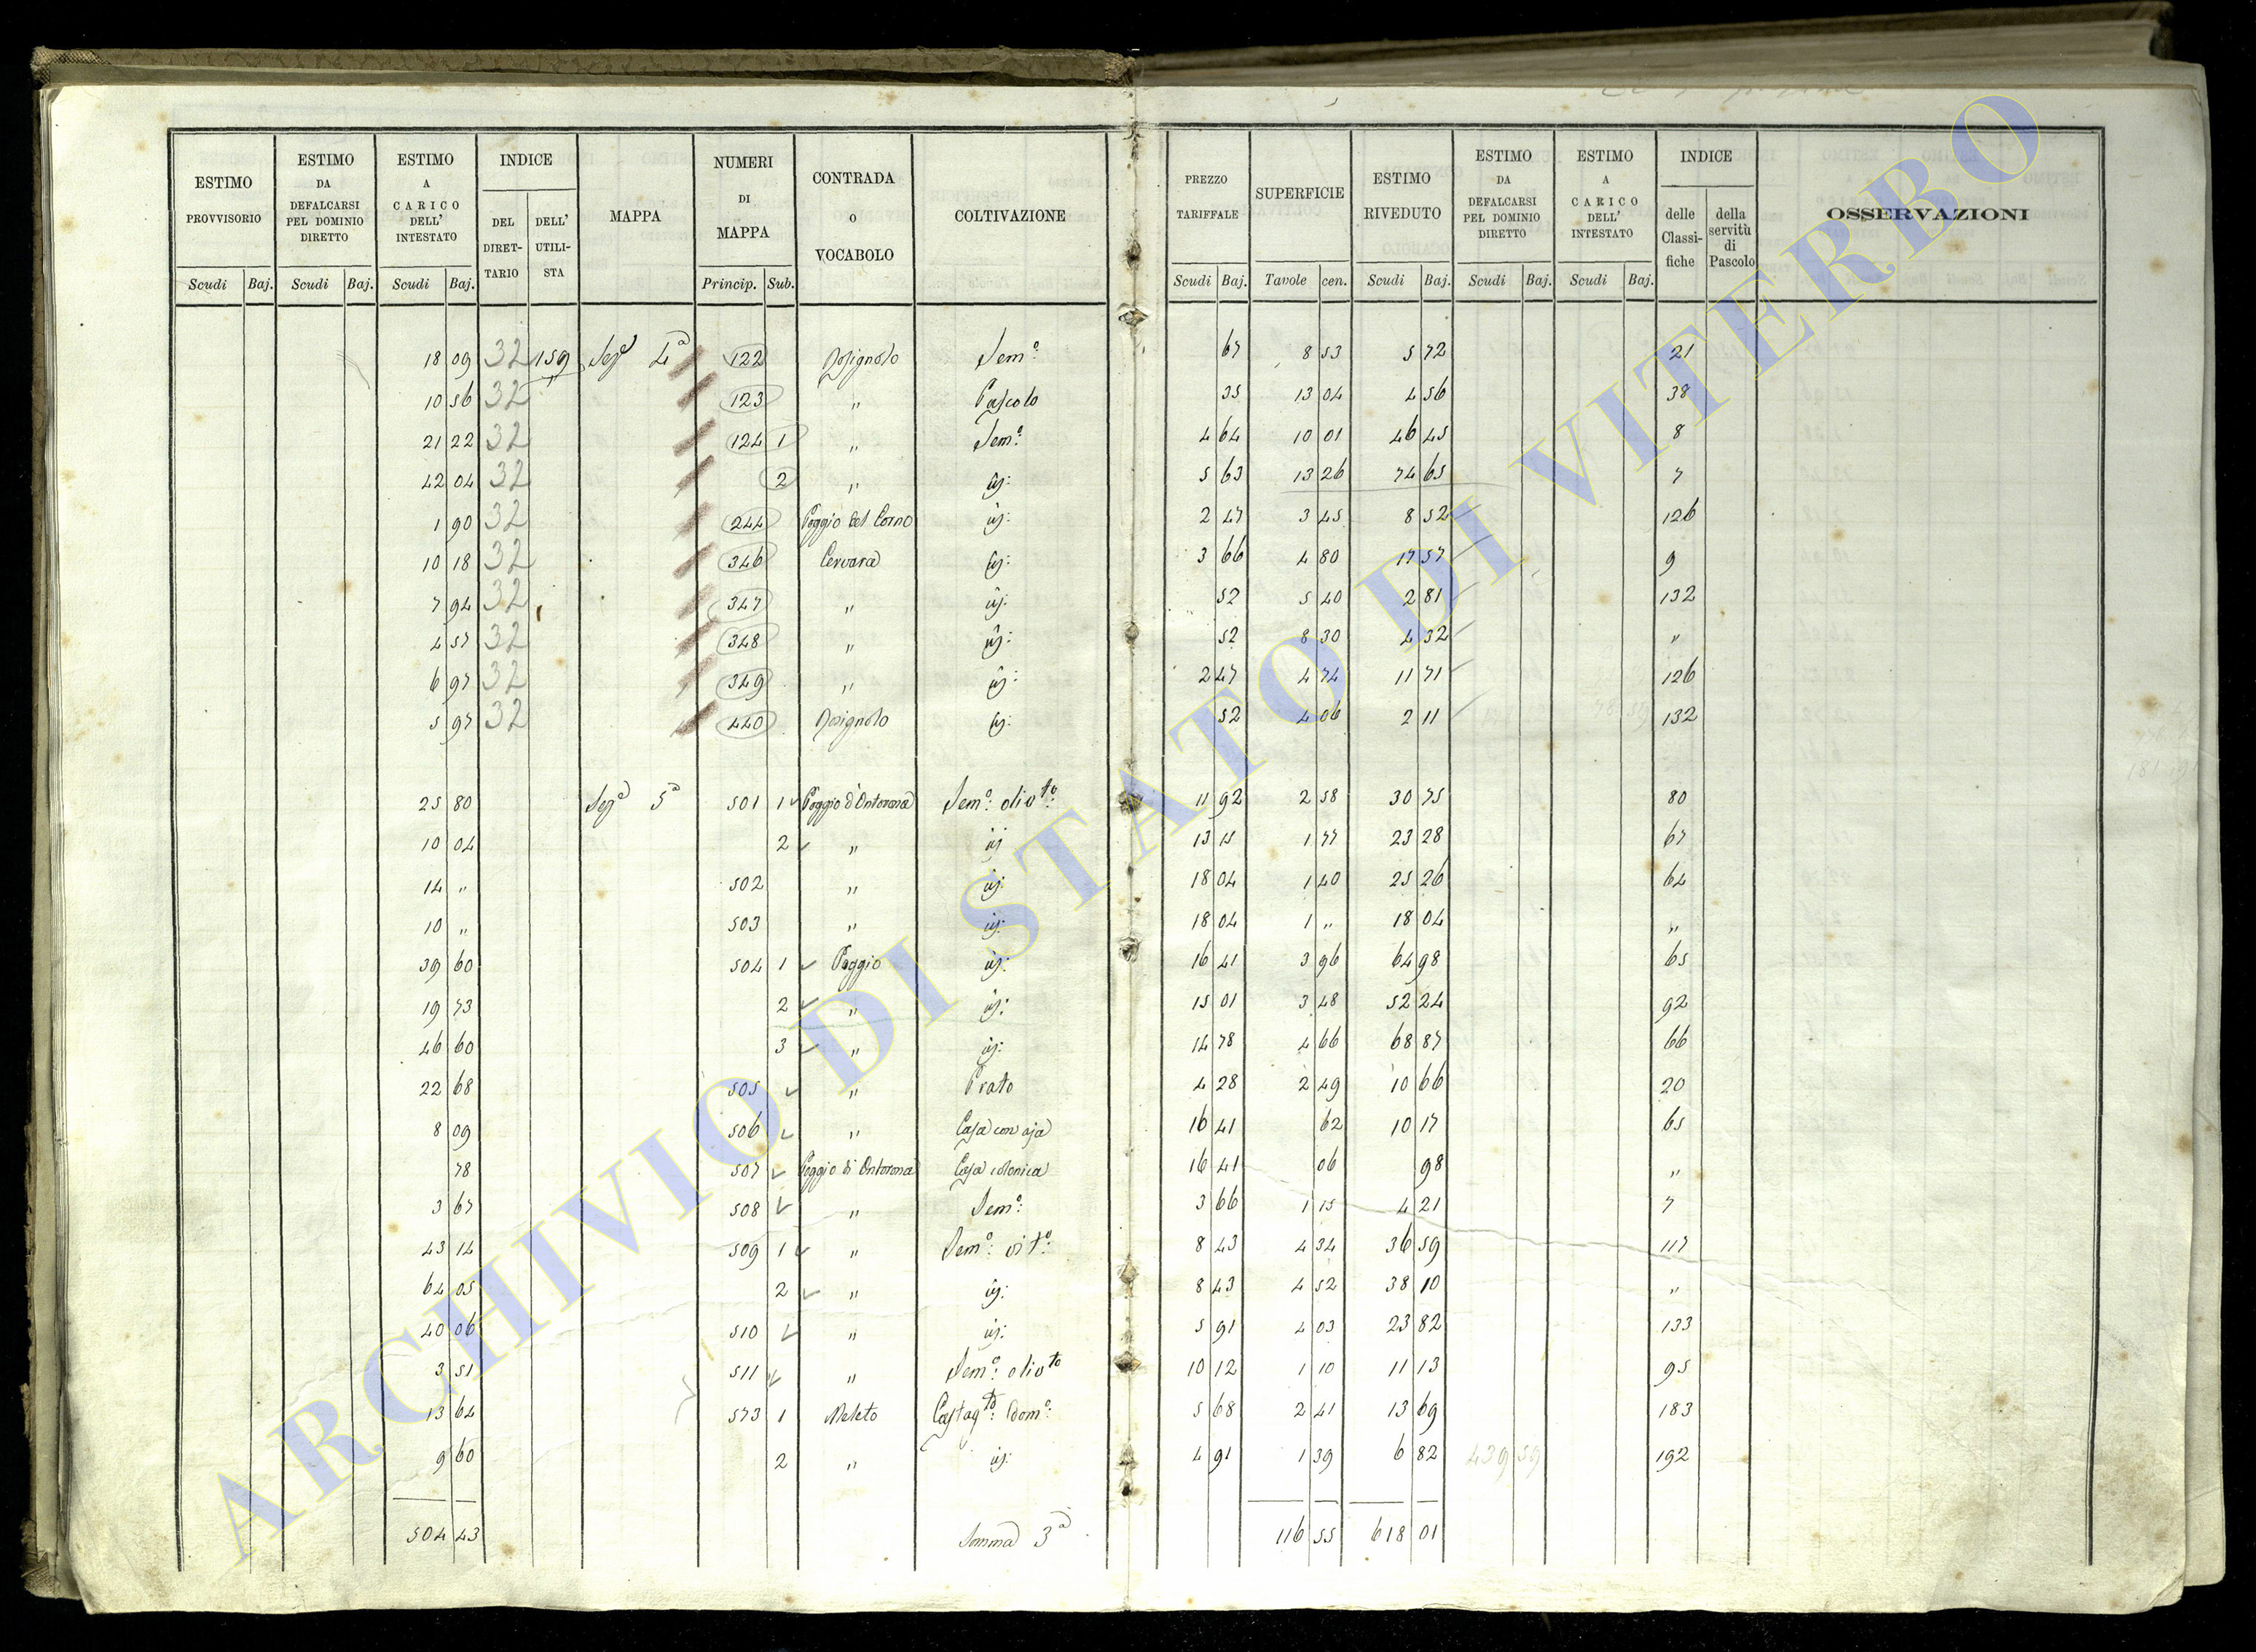 ESTIMO PROVVISORIO | ESTIMO DA DEFALCARSI PEL DOMINIO DIRETTO | ESTIMO A CARICO DELL' INTESTATO | INDICE DEL DIRETTARIO | DELL' UTILISTA | MAPPA | NUMERI DI MAPPA | CONTRADA O VOCABOLO | COLTIVAZIONE | PREZZO TARIFFALE | SUPERFICIE | ESTIMO RIVEDUTO | ESTIMO DA DEFALCARSI PEL DOMINIO DIRETTO | ESTIMO A CARICO DELL' INTESTATO | INDICE delle Classifiche | della servitù di Pascolo | OSSERVAZIONI
Scudi Baj. Scudi Baj. Scudi Baj. Princip. Sub. Scudi Baj. Tavole cen. Scudi Baj. Scudi Baj. Scudi Baj.
18 09 32 159 Sezª 4ª 122 Semº: 67 8 53 5 72 21
10 56 32 " 123 " Pascolo 35 13 04 4 56 38
21 22 32 124 1 " Semº: 4 64 10 01 46 45 8
42 04 32 2 " 5 63 13 26 74 65 7
1 90 32 244 Poggio del Corno 2 47 3 45 8 52 126
10 18 32 346 Cervara 3 66 4 80 17 57 9
7 94 32 347 " 52 5 40 2 81 132
4 57 32 348 " 52 8 30 4 32 "
6 97 32 349 " 2 47 4 74 11 71 126
5 97 32 440 52 4 06 2 11 132
25 80 Sezª 5ª 501 1 Semº: olivto: 11 92 2 58 30 75 80
10 04 2 " 13 15 1 77 23 28 67
14 " 502 " 18 04 1 40 25 26 64
10 " 503 " 18 04 1 " 18 04 "
39 60 504 1 Poggio 16 41 3 96 64 98 65
19 73 2 " 15 01 3 48 52 24 92
46 60 3 " 14 78 4 66 68 87 66
22 68 505 " Prato 4 28 2 49 10 66 20
8 09 506 " Casa con aja 16 41 62 10 17 65
78 507 Casa colonica 16 41 06 98 "
3 67 508 " Semº: 3 66 1 15 4 21 7
43 14 509 1 " Semº: vitº: 8 43 4 34 36 59 117
64 05 2 " 8 43 4 52 38 10 "
40 06 510 " 5 91 4 03 23 82 133
3 51 511 " Semº: olivto 10 12 1 10 11 13 95
13 64 573 1 Meleto Castagto: domº: 5 68 2 41 13 69 183
9 60 2 " 4 91 1 39 6 82 439 59 192
504 43 Somma 3ª 116 55 618 01
ARCHIVIO DI STATO DI VITERBO